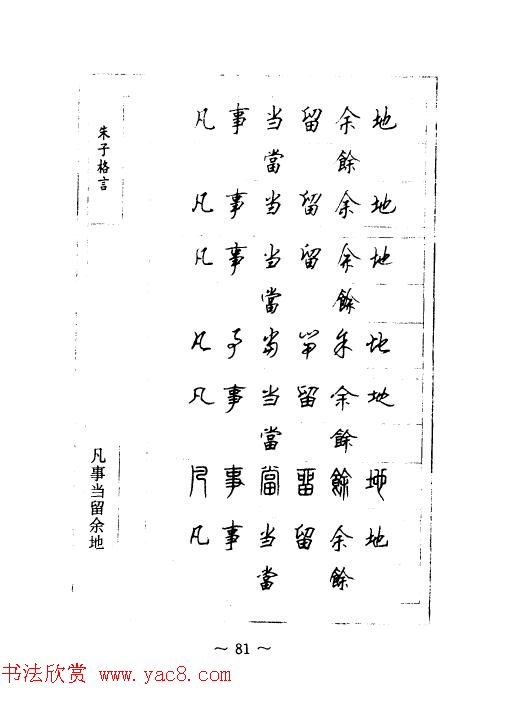 朱子格言
凡事当留余地
凡事当留余地
當餘
凡事当留余地
凡事当留余地
當餘
凡事当留余地
凡事当留余地
當餘
凡事當留餘地
凡事当留余地
當餘
～ 81 ～
书法欣赏 www.yac8.com